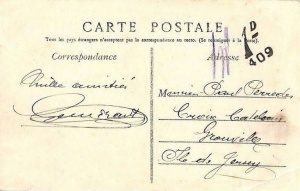 CARTE POSTALE
Tous les pays étrangers n'acceptent pas la correspondance au recto. (Se renseigner à la Poste).
Correspondance
Adresse
1 D
409
Mille amitiés
Monsieur Paul
Croix
Grouville
Ile de Jersey